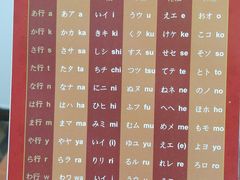 あ行 a あア a いイ i うウ u えエ e おオ o
か行 ka かカ ka きキ ki くク ku けケ ke こコ ko
さ行 sa さサ sa しシ shi すス su せセ se そソ so
た行 ta たタ ta ちチ chi つツ tsu てテ te とト to
な行 na なナ na にニ ni ぬヌ nu ねネ ne のノ no
は行 ha はハ ha ひヒ hi ふフ fu へヘ he ほホ ho
ま行 ma まマ ma みミ mi むム mu めメ me もモ mo
や行 ya やヤ ya (いイ i) ゆユ yu (えエ e) よヨ yo
ら行 ra らラ ra りリ ri るル ru れレ re ろロ ro
わ行 wa わワ wa